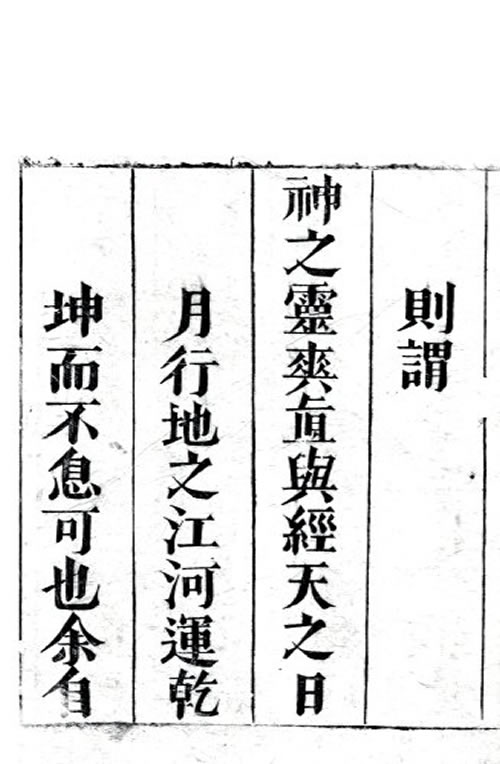 則謂
神之靈爽直與經天之日
月行地之江河運乾
坤而不息可也余自